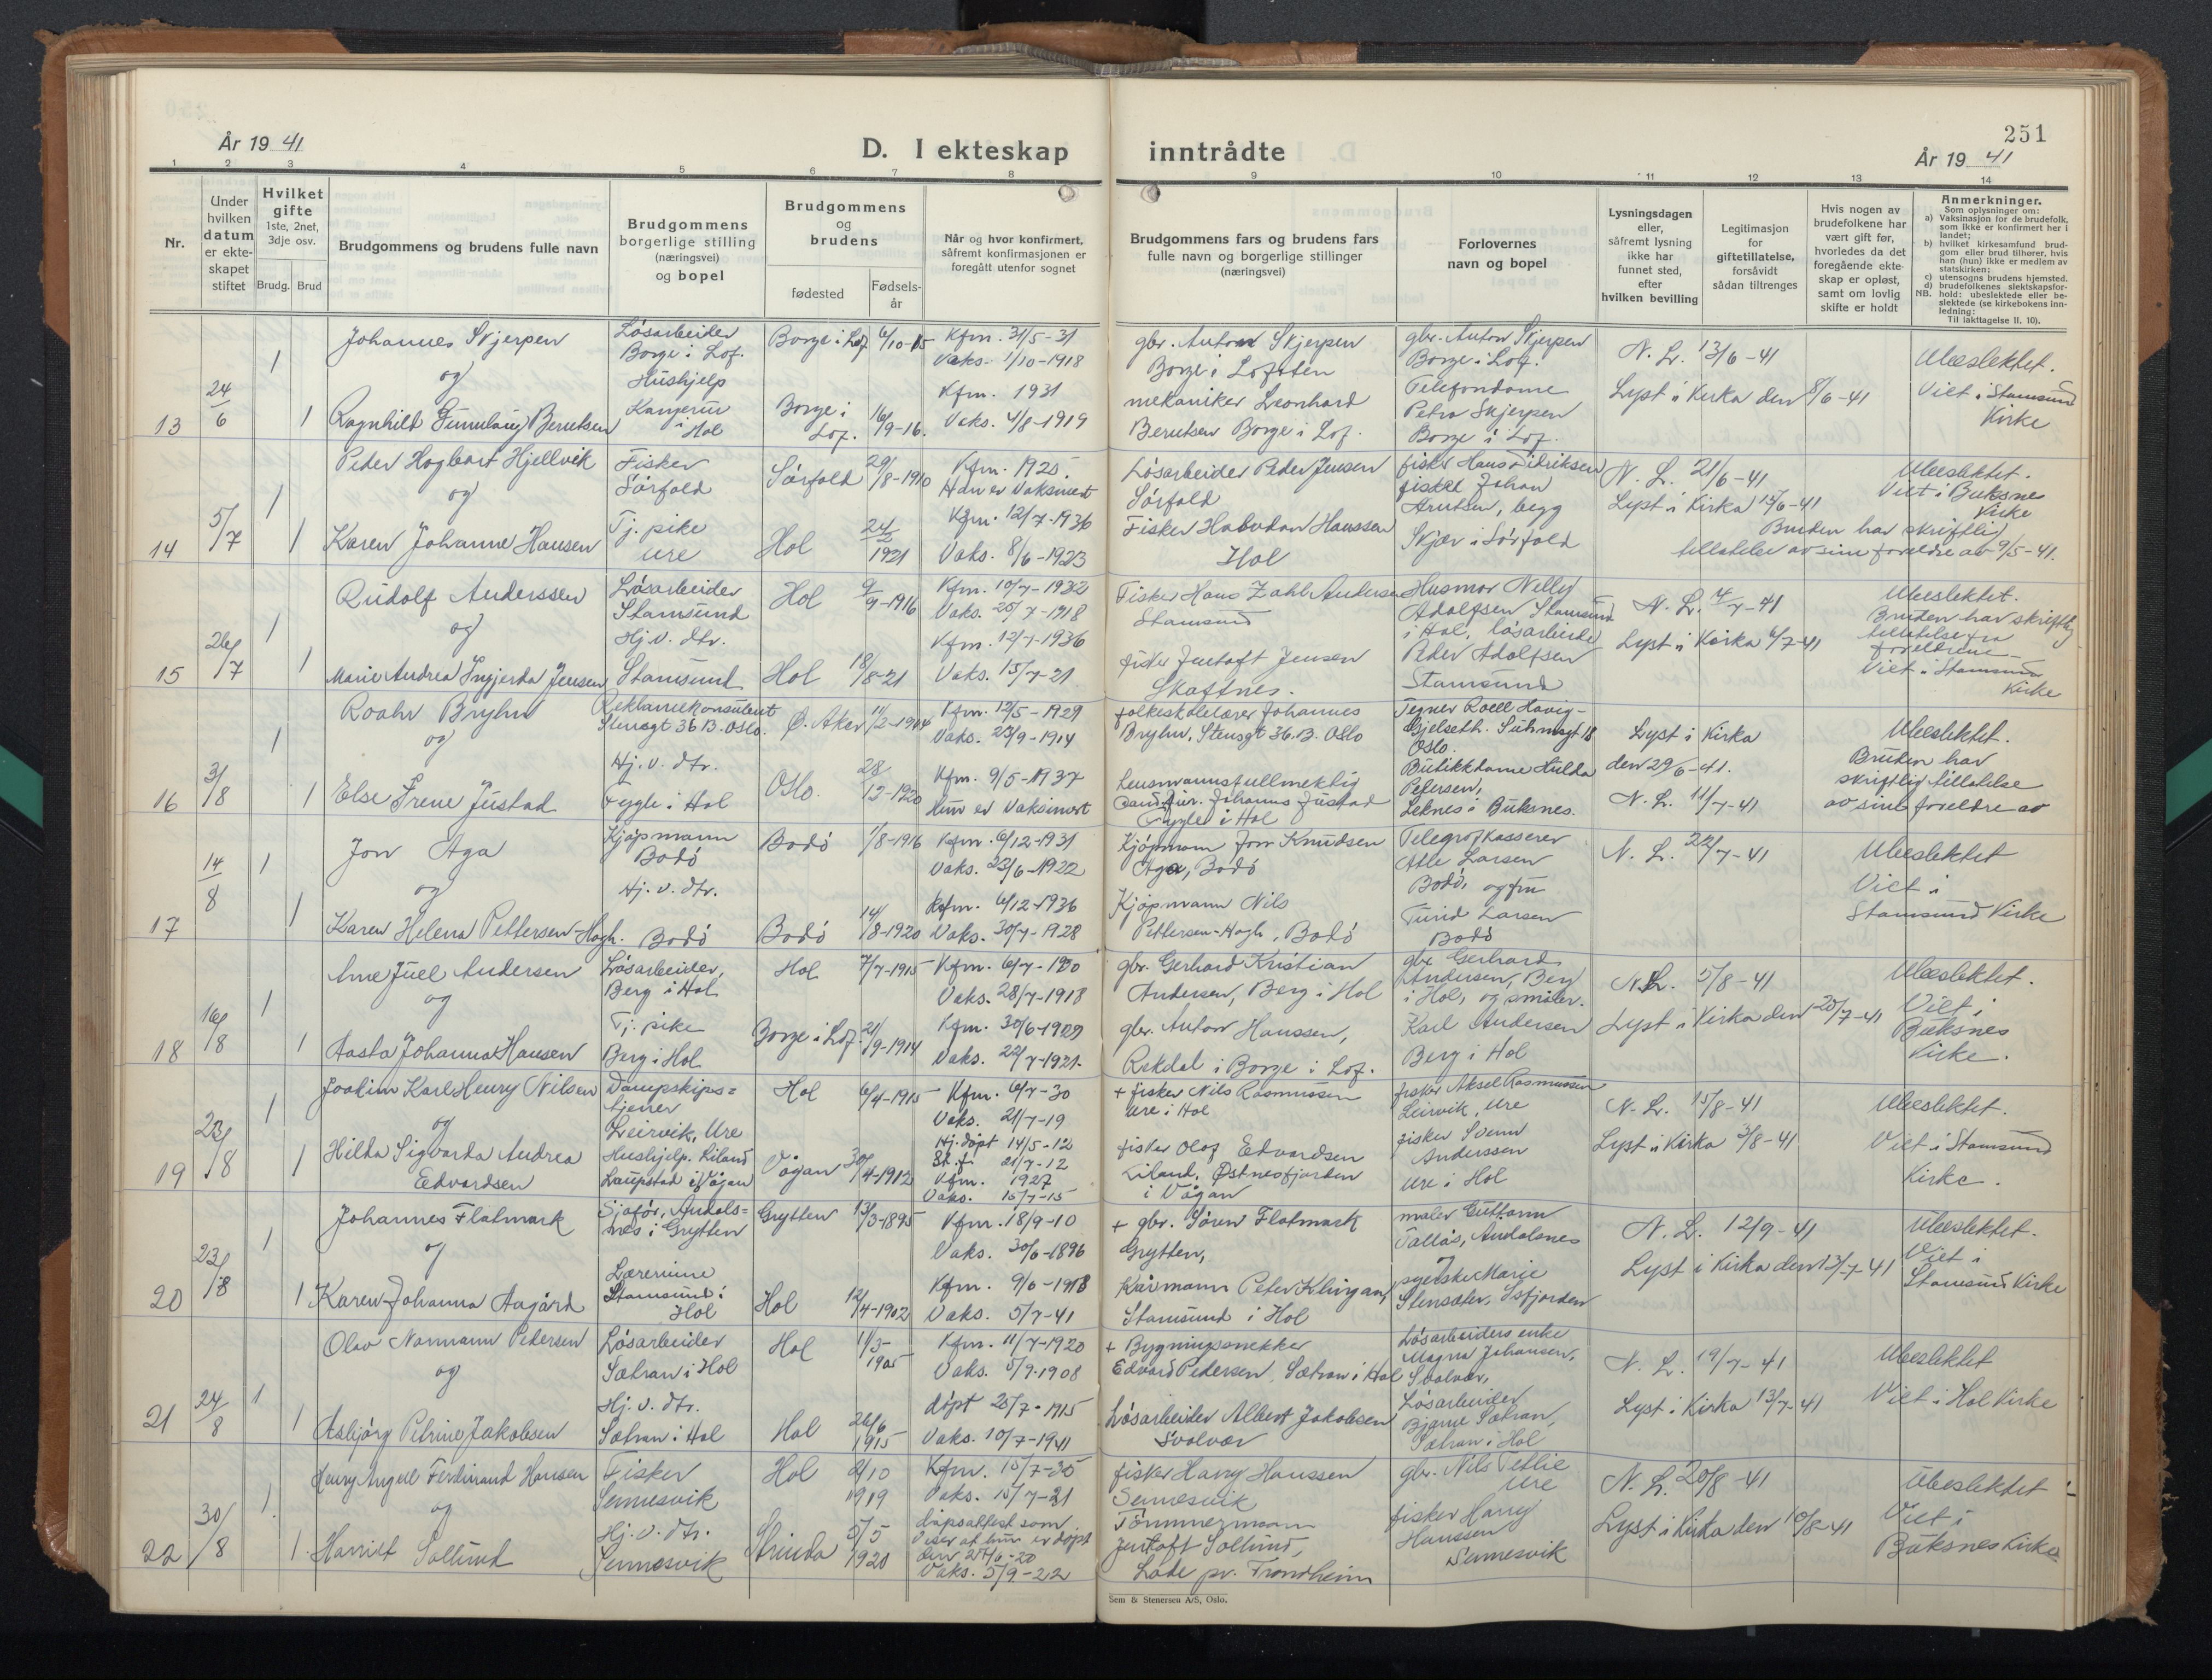 251
År 1941
D. I ekteskap inntrådte
År 1941
1 2 3 4 5 6 7 8 9 10 11 12 13 14
Nr.
Under hvilken datum er ekteskapet stiftet
Hvilket gifte 1ste, 2net, 3dje osv.
Brudg. Brud
Brudgommens og brudens fulle navn
Brudgommens borgerlige stilling (næringsvei) og bopel
Brudgommens og brudens
fødested
Fødselsår
Når og hvor konfirmert, såfremt konfirmasjonen er foregått utenfor sognet
Brudgommens fars og brudens fars fulle navn og borgerlige stillinger (næringsvei)
Forlovernes navn og bopel
Lysningsdagen eller, såfremt lysning ikke har funnet sted, efter hvilken bevilling
Legitimasjon for giftetillatelse, forsåvidt sådan tiltrenges
Hvis nogen av brudefolkene har vært gift før, hvorledes da det foregående ekteskap er opløst, samt om lovlig skifte er holdt
Anmerkninger.
Som oplysninger om:
a) Vaksinasjon for de brudefolk, som ikke er konfirmert her i landet;
b) hvilket kirkesamfund brudgom eller brud tilhører, hvis han (hun) ikke er medlem av statskirken;
c) utensogns brudens hjemsted.
d) brudefolkenes slektskapsforhold: ubeslektede eller beslektede (se kirkebokens innledning:
NB.
Til iakttagelse II. 10).
13 24/6 1 1
Johannes Skjerpen
og
Ragnhild Gunnlaug Berntsen
Løsarbeider
Borge i Lof.
Hushjelp
Hol
Borge i Lof. 6/10-15
Borge i Lof. 16/9-16.
Kfm. 31/5-31
Vaks. 1/10-1918
Kfm. 1931
Vaks. 4/8-1919
gbr. Anton Skjerpen
Borge i Lofoten
mekaniker Leonhard
Berntsen Borge i Lof.
gbr. Anton Skjerpen
Borge i Lof.
Telefondame
Petra Skjerpen
Borge i Lof.
N. L. 13/6-41
Lyst i Kirka den 8/6-41
Ubeslektet.
Viet i Stamsund
Kirke
14 5/7 1 1
Peder Hagbart Hjellvik
og
Karen Johanne Hansen
Fisker
Sørfold
Tj. pike
Ure
Sørfold 29/8-1910
Hol 24/2 1921
Kfm. 1925.
Han er Vaksinert
Kfm. 12/7-1936
Vaks. 8/6-1923
Løsarbeider Peder Jensen
Sørfold
Fisker Halvdan Hanssen
Hol
fisker Hans Fidriksen
fisker Johan
Arntsen, begg
Skjær i Sørfold
N. L. 21/6-41
Lyst i Kirka 15/6-41
Ubeslektet.
Viet i Buksnes
Kirke
Bruden har skriftlig
tillatelse av sine foreldre av 9/5-41.
15 26/7 1 1
Rudolf Anderssen
og
Marie Andrea Ingjerda Jensen
Løsarbeider
Stamsund
Hj. v. dtr.
Stamsund
Hol 9/9-1916
Hol 18/8-21
Kfm. 10/7-1932
Vaks. 25/7-1918
Kfm. 12/7-1936
Vaks. 15/7-21
Fisker Hans Zahl Andersen
Stamsund
fisker Jentoft Jensen
Skaftnes.
Husmor Nelly
Adolfsen Stamsund
i Hol, løsarbeider
Peder Adolfsen
Stamsund
N. L. 14/7-41
Lyst i Kirka 6/7-41
Ubeslektet.
Bruden har skriftlig
tillatelse fra
foreldrene
Viet i Stamsund
Kirke
16 3/8 1 1
Roahr Bryhn
og
Else Irene Justad
Reklamekonsulent
Stensgt 36 B. Oslo.
Hj. v. dtr.
Fygle i Hol
Ø. Aker 11/2-1914
Oslo. 28/12-1920
Kfm. 12/5-1929
Vaks. 23/9-1914
Kfm. 9/5-1937
Hun er Vaksinert
folkeskolelærer Johannes
Bryhn, Stensgt 36. B. Oslo
Lensmannsfullmektig
cand. jur. Johannes Justad
Fygle i Hol
Tegner Roell Hovig-
Gjelseth. Suhmsgt 18
Oslo.
Butikkdame Hulda
Petersen,
Leknes i Buksnes.
Lyst i Kirka
den 29/6-41.
N. L. 11/7-41
Ubeslektet.
Bruden har
skriftlig tillatelse
av sine foreldre av
17 14/8 1 1
Jon Aga
og
Karen Helena Pettersen-Hagh.
Kjøpmann
Bodø
Hj. v. dtr.
Bodø
Bodø 1/8-1916
Bodø 14/8-1920
Kfm. 6/12-1931
Vaks. 23/6-1922
Kfm. 6/12-1936
Vaks. 30/7-1928
Kjøpmann Jon Knudsen
Aga, Bodø
Kjøpmann Nils
Pettersen-Hagh, Bodø
Telegrafkasserer
Atle Larsen
Bodø, og fru
Turid Larsen
Bodø
N. L. 22/7-41
Ubeslektet
Viet i
Stamsund Kirke
18 16/8 1 1
Arne Juel Andersen
og
Aasta Johanna Hansen
Løsarbeider,
Berg i Hol
Tj. pike
Berg i Hol
Hol 7/7-1915
Borge i Lof. 21/9-1914
Kfm. 6/7-1930
Vaks. 28/7-1918
Kfm. 30/6-1929
Vaks. 22/7-1921.
gbr. Gerhard Kristian
Andersen, Berg i Hol
gbr. Anton Hanssen,
Rekdal i Borge i Lof.
gbr. Gerhard
Andersen, Berg
i Hol, og småbr.
Karl Andersen
Berg i Hol
N. L. 5/8-41
Lyst i Kirka den 20/7-41
Ubeslektet.
Viet i
Buksnes
Kirke.
19 23/8 1 1
Joakim Karl Henry Nilsen
og
Hilda Sigvarda Andrea
Edvardsen
Dampskips=
tjener
Leirvik, Ure
Hushjelp. Liland
Laupstad i Vågan
Hol 6/4-1915
Vågan 30/4-1912
Kfm. 6/7-30
Vaks. 21/7-19
Hj. døpt 14/5-12
St. f. 21/7-12
Kfm. 1927
Vaks. 15/7-15
+ fisker Nils Rasmussen
Ure i Hol
fisker Olof Edvardsen
Liland, Østnesfjorden
i Vågan
fisker Aksel Rasmussen
Leirvik, Ure
fisker Svenn
Anderssen
Ure i Hol
N. L. 15/8-41
Lyst i Kirka 3/8-41
Ubeslektet.
Viet i Stamsund
Kirke.
20 23/8 1 1
Johannes Flatmark
og
Karen Johanna Aagård
Sjåfør, Åndals=
nes i Grytten
Lærerinne
Stamsund i
Hol
Grytten 13/3-1895
Hol 12/4-1902
Kfm. 18/9-10
Vaks. 30/6-1896
Kfm. 9/6-1918
Vaks. 5/7-41
+ gbr. Søren Flatmark
Grytten,
Kårmann Peter Klingan,
Stamsund i Hol
maler Guttorm
Tallås, Åndalsnes
og
syerske Marie
Stensæter, Isfjorden
N. L. 12/9-41
Lyst i Kirka den 13/7-41
Ubeslektet.
Viet i
Stamsund Kirke
21 24/8 1 1
Olav Normann Pedersen
og
Asbjørg Petrine Jakobsen
Løsarbeider
Sætran i Hol
Hj. v. dtr.
Sætran i Hol
Hol 1/3-1905
Hol 26/6 1915
Kfm. 11/7-1920
Vaks. 5/9-1908
døpt 25/7-1915
Vaks. 10/7-1941
+ Bygningssnekker
Edvard Pedersen, Sætran i Hol
Løsarbeider Albert Jakobsen
Svolvær
Løsarbeiders enke
Magna Johansen,
Svolvær,
Løsarbeider
Bjarne Sætran,
Sætran i Hol
N. L. 19/7-41
Lyst i Kirka 13/7-41
Ubeslektet
Viet i Hol Kirke
22 30/8 1 1
Henry Angell Ferdinand Hansen
og
Harriet Sollund
Fisker
Sennesvik
Hj. v. dtr.
Sennesvik
Hol 2/10 1919
Strinda 5/5 1920
Kfm. 15/7-35
Vaks. 15/7-21
Dåpsattest som
viser at hun er døpt
den 27/6-20
Vaks. 5/9-22
fisker Harry Hanssen
Sennesvik
Tømmermann
Jentoft Sollund,
Lade pr. Trondheim
gbr. Nils Tetlie
Ure
fisker Harry
Hanssen
Sennesvik
N. L. 20/8-41
Lyst i Kirka den 10/8-41
Ubeslektet
Viet i
Buksnes Kirke
Sem & Stenersen A/S, Oslo.